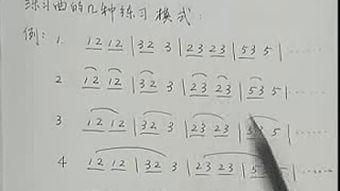 练习曲的几种练习模式:
例: 1. 12 12 | 32 3 | 23 23 | 53 5 | ......
2 12 12 | 32 3 | 23 23 | 53 5 | ......
3 12 12 | 32 3 | 23 23 | 5 | ......
4 12 12 | 32 3 | 23 23 | 5 5 | ......